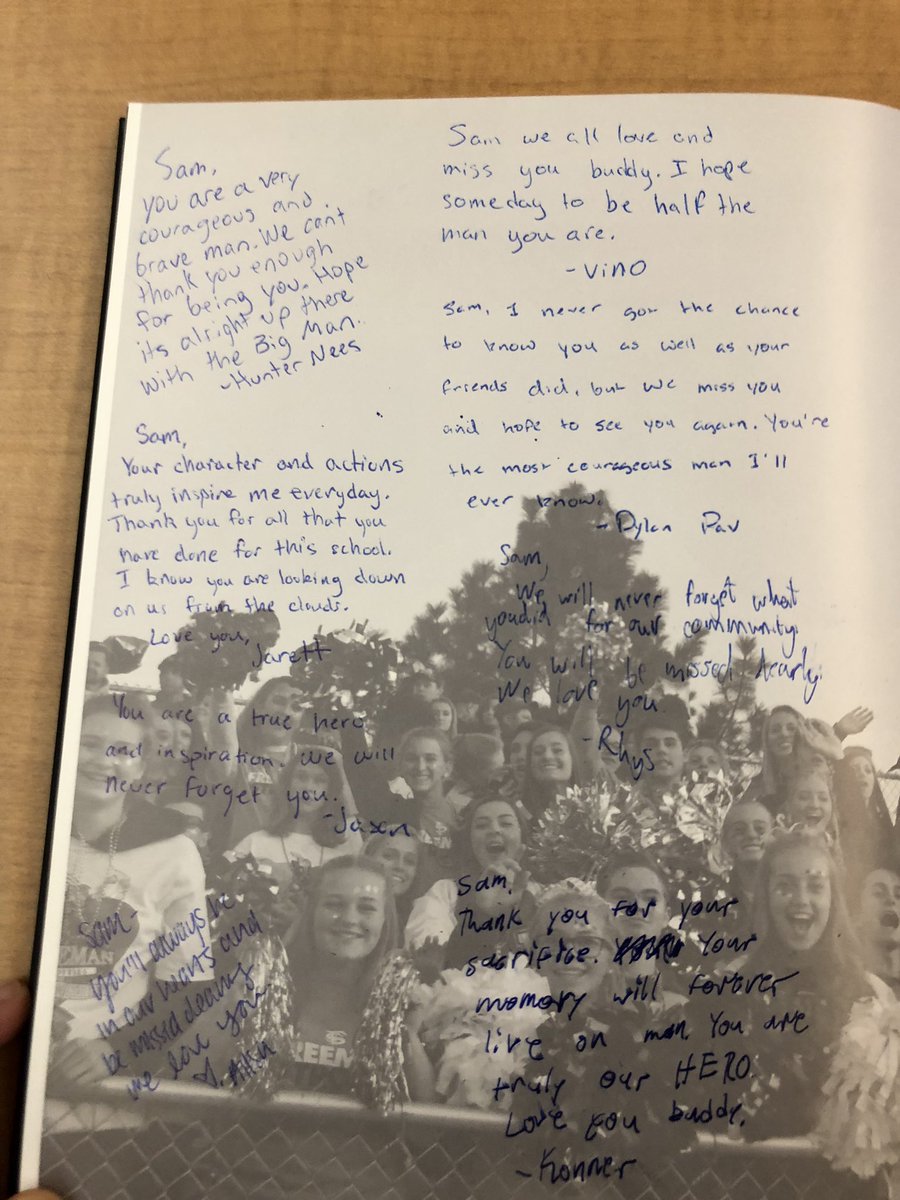 Sam,
you are a very
courageous and
brave man. We cant
thank you enough
for being you. Hope
its alright up there
with the Big Man.
-Hunter Nees
Sam,
Your character and actions
truly inspire me everyday.
Thank you for all that you
have done for this school.
I know you are looking down
on us from the clouds.
Love you,
Jarett
You are a true hero
and inspiration. We will
never forget you.
-Jaxon
Sam-
you'll always be
in our hearts and
be missed dearly
we love you
Sam we all love and
miss you buddy. I hope
someday to be half the
man you are.
-Vino
Sam, I never got the chance
to know you as well as your
friends did, but we miss you
and hope to see you again. You're
the most courageous man I'll
ever know.
-Dylan Pav
Sam,
We will never forget what
you did for our community.
You will be missed dearly.
We love you.
-Rhys
Sam,
Thank you for your
sacrifice. Your
momory will forever
live on man. You are
truly our HERO.
Love you buddy.
-Konner
EEM
MAN